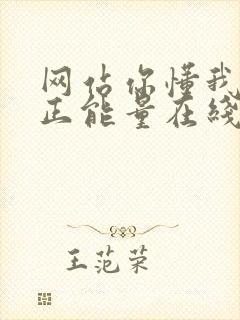 网站你懂我
正能量在线
王范荣